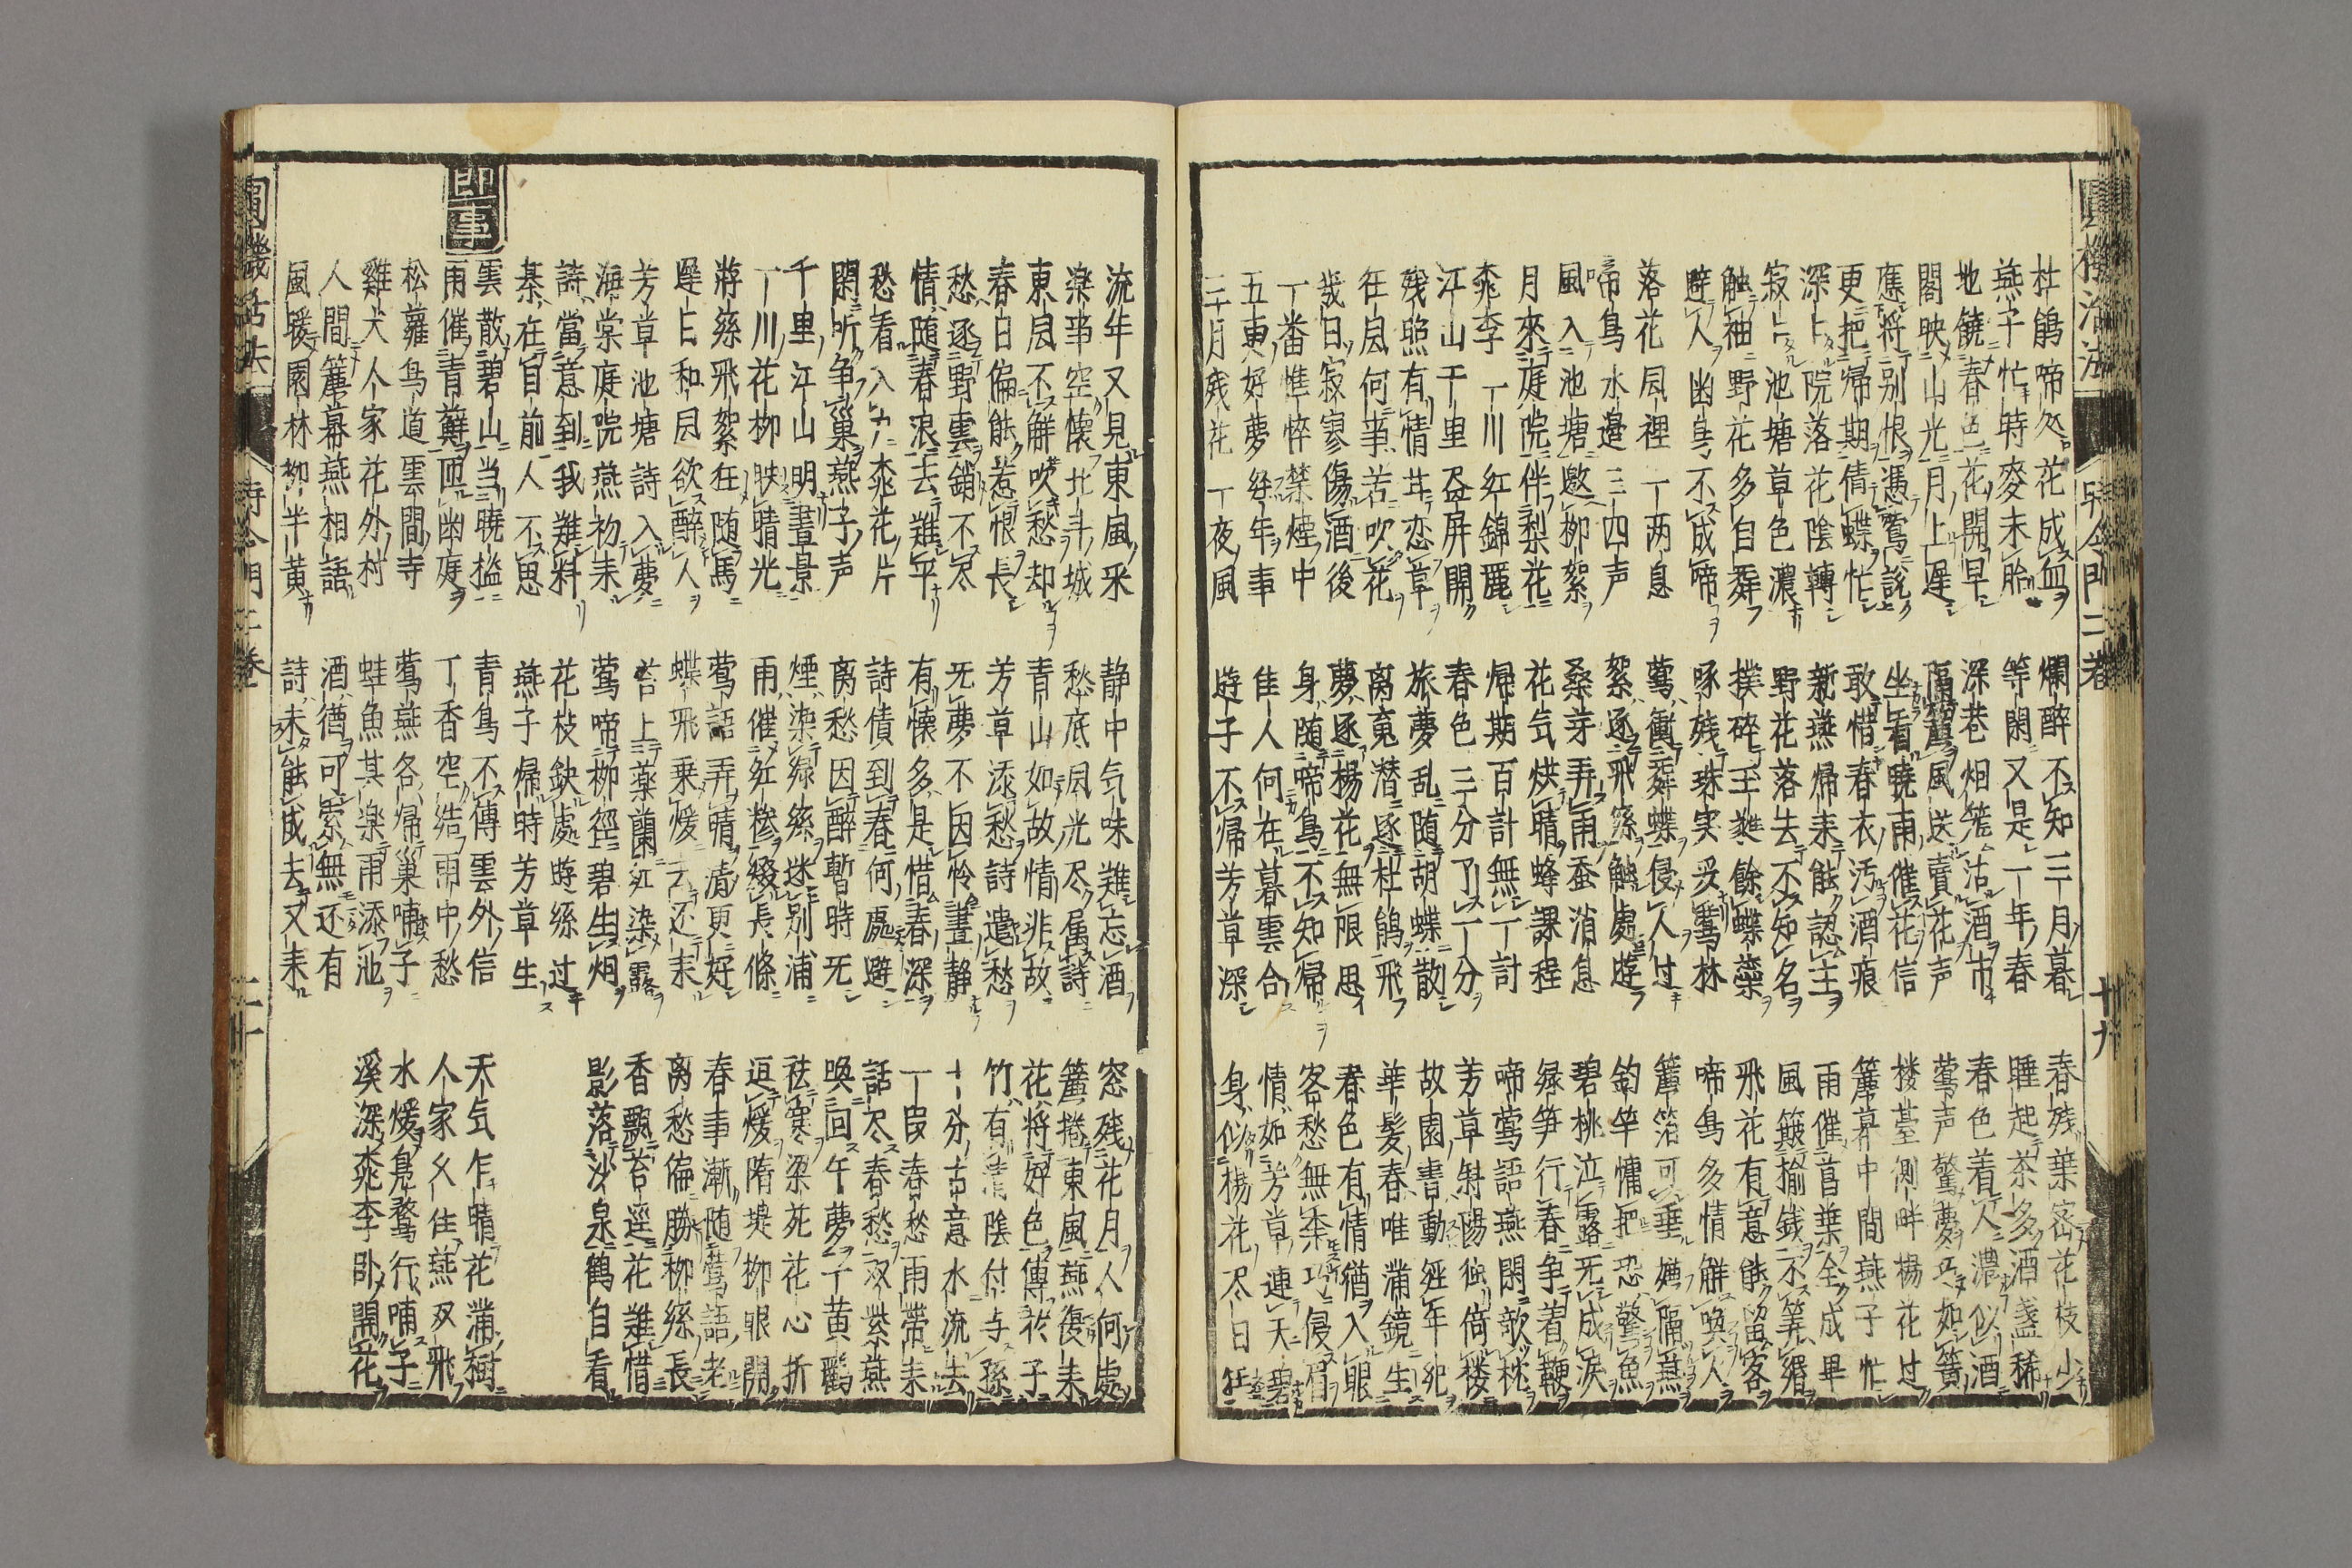 圓機活法 詩令門二巻 十九
杜鵑啼処花成血 爛醉不知三月暮 春残葉密花枝少
燕子忙時麥未胎 等閑又是一年春 睡起茶多酒盞稀
地饒春色花開早 深巷烟籠沽酒市 春色着人濃似酒
閣映山光月上遅 隔籬風送賣花声 鶯声驚夢巧如簧
應将别恨憑鶯説 坐看曉雨催花信 楼臺側畔楊花过
更把帰期倩蝶忙 敢惜春衣汚酒痕 簾幕中間燕子忙
深〻院落花陰轉 新燕帰来能認主 雨催菖葉全成畢
寂〻池塘草色濃 野花落去不知名 風簸揄錢不筭緡
触袖野花多自舞 撲碎玉蕤餘蝶蘂 飛花有意能留客
避人幽鳥不成啼 啄残珠実妥鶯林 啼鳥多情解喚人
落花凨裡一两息 鶯衝舞蝶侵人过 簾箔可垂嫌隔燕
啼鳥水邉三四声 絮逐飛絲触處遊 釣竿慵把恐驚魚
風入池塘邀柳絮 桑芽弄雨蚕消息 碧桃泣露无成涙
月來庭院伴梨花 花気烘晴蜂課程 緑笋行春争着鞭
桃李一川紅錦麗 帰期百計無一計 啼鶯語燕閑欹枕
江山千里盃屏開 春色三分了一分 芳草斜陽独倚楼
残照有情芸恋草 旅夢乱随胡蝶散 故園書動経年絶
狂凨何事苦吹花 离䰟潜逐杜鵑飛 華髪春唯滿鏡生
幾日寂寥傷酒後 夢逐楊花無限思 春色有情猶入眼
一番憔悴禁煙中 身随啼鳥不知帰 客愁無柰巧侵眉
五更好夢経年事 佳人何在暮雲合 情如芳草連天碧
三月残花一夜風 遊子不帰芳草深 身似楊花尽日狂
流年又見東風來 静中气味難忘酒 窓残花月人何處
楽事空懐北斗城 愁底凨光尽属詩 簾捲東風燕復来
東凨不解吹愁却 青山如故情非故 花将好色傳於子
春日偏能惹恨長 芳草添愁詩遣愁 竹有清陰付与孫
愁逐野雲銷不尽 无夢不因怜晝静 十分古意水流去
情随春浪去難平 有懐多是惜春深 一段春愁雨帯来
愁看入户桃花片 詩債到春何處避 話尽春愁双紫燕
閑听争巢燕子声 离愁因醉暫時无 喚回午夢一黄鸝
千里江山明晝景 煙染緑絲迷别浦 祛寒梁苑花心折
一川花柳映晴光 雨催紅糝綴長條 逗煖隋堤柳眼開
游絲飛絮狂随馬 鶯語弄晴清更好 春事漸随鶯語老
遅日和凨欲醉人 蝶飛乗煖去还来 离愁偏勝柳絲長
芳草池塘詩入夢 苔上薬蘭紅染露 香飄苔逕花難惜
海棠庭院燕初来 鶯啼柳徑碧生烟 影落沙泉鶴自看
詩當意到我難料 花枝缺處遊絲过
棊在旨前人不思 燕子帰時芳草生
即事
雲散碧山当曉檻 青鳥不傳雲外信 天气乍晴花滿樹
雨催青蘚匝幽庭 丁香空結雨中愁 人家久住燕双飛
松蘿鳥道雲間寺 鶯燕各帰巢哺子 水煖鳧鶩行哺子
雞犬人家花外村 蛙魚其楽雨添池 溪深桃李卧開花
人間簾幕燕相語 酒猶可索無还有
風暖園林柳半黄 詩未能成去又来
圓機活法 詩令門二巻 二十